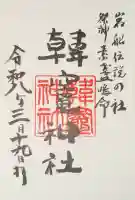 岩船伝説の社
祭神 素盞嗚命
韓竈神社
令和八年三月十九日